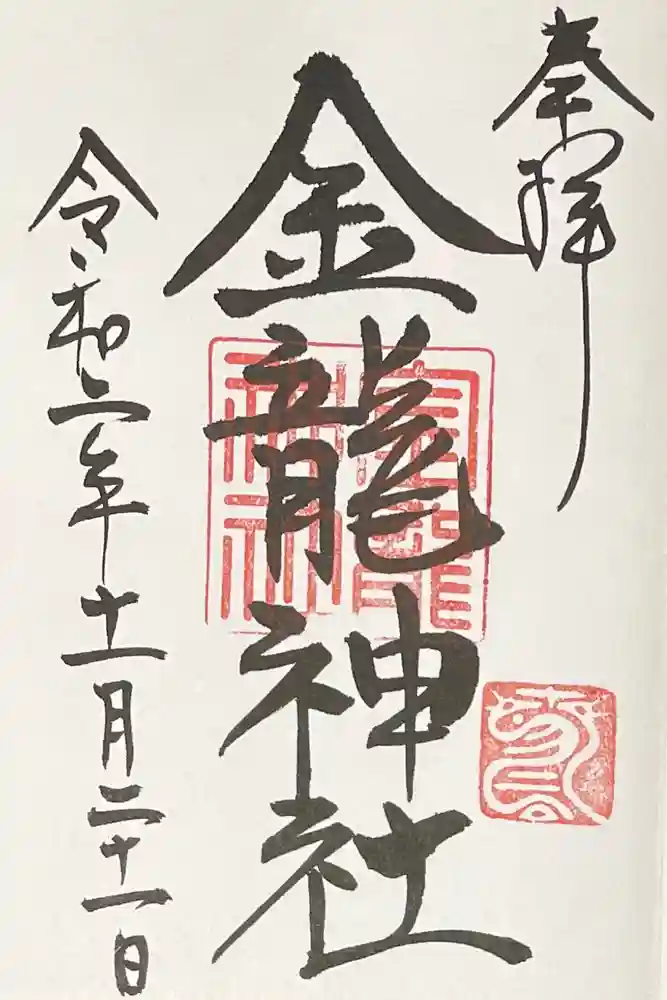 奉拝
金龍神社
令和二年十一月二十一日
金龍神社